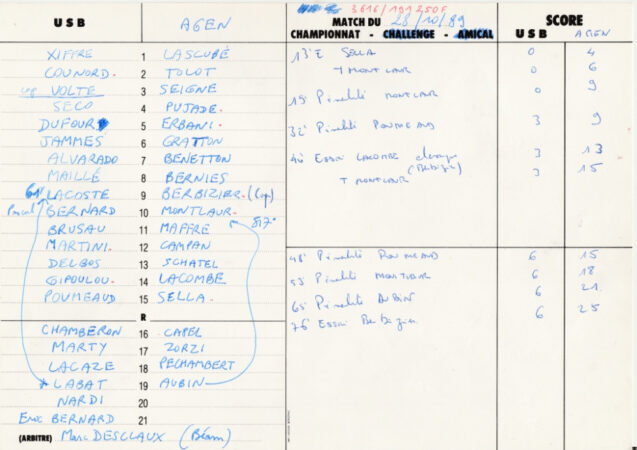 U S B AGEN
XIFFRE 1 LASCUBÉ
COUNORD. 2 TOLOT
cap VOLTE 3 SEIGNE
SECO 4 PUJADE.
DUFOUR 5 ERBANI.
JAMMES 6 GRATTON
ALVARADO 7 BENETTON
MAILLÉ 8 BERNIES
61' LACOSTE 9 BERBIZIER. (Cap)
Pascal BERNARD 10 MONTLAUR.
BRUSAU 11 MAFFRE
MARTINI. 12 CAMPAN
DELBOS 13 SCHATEL
GIPOULOU. 14 LACOMBE
POUMEAUD 15 SELLA.
R
CHAMBERON 16 CAPEL
MARTY 17 ZORZI
LACAZE 18 PECHAMBERT
LABAT 19 AUBIN
NARDI 20
Eric BERNARD 21
(ARBITRE) Marc DESCLAUX (Béarn)
3616/191250F
MATCH DU 28/10/89
CHAMPIONNAT - CHALLENGE - AMICAL
SCORE
U S B AGEN
13' E SELLA 0 4
T MONTLAUR 0 6
Pénalité MONTLAUR 0 9
32' Pénalité POUMEAUD 3 9
Essai LACOMBE 3 13
(Berbizier)
T MONTLAUR 3 15
48' Pénalité POUMEAUD 6 15
53' Pénalité MONTLAUR 6 18
65' Pénalité AUBIN 6 21
76' Essai Berbizier 6 25